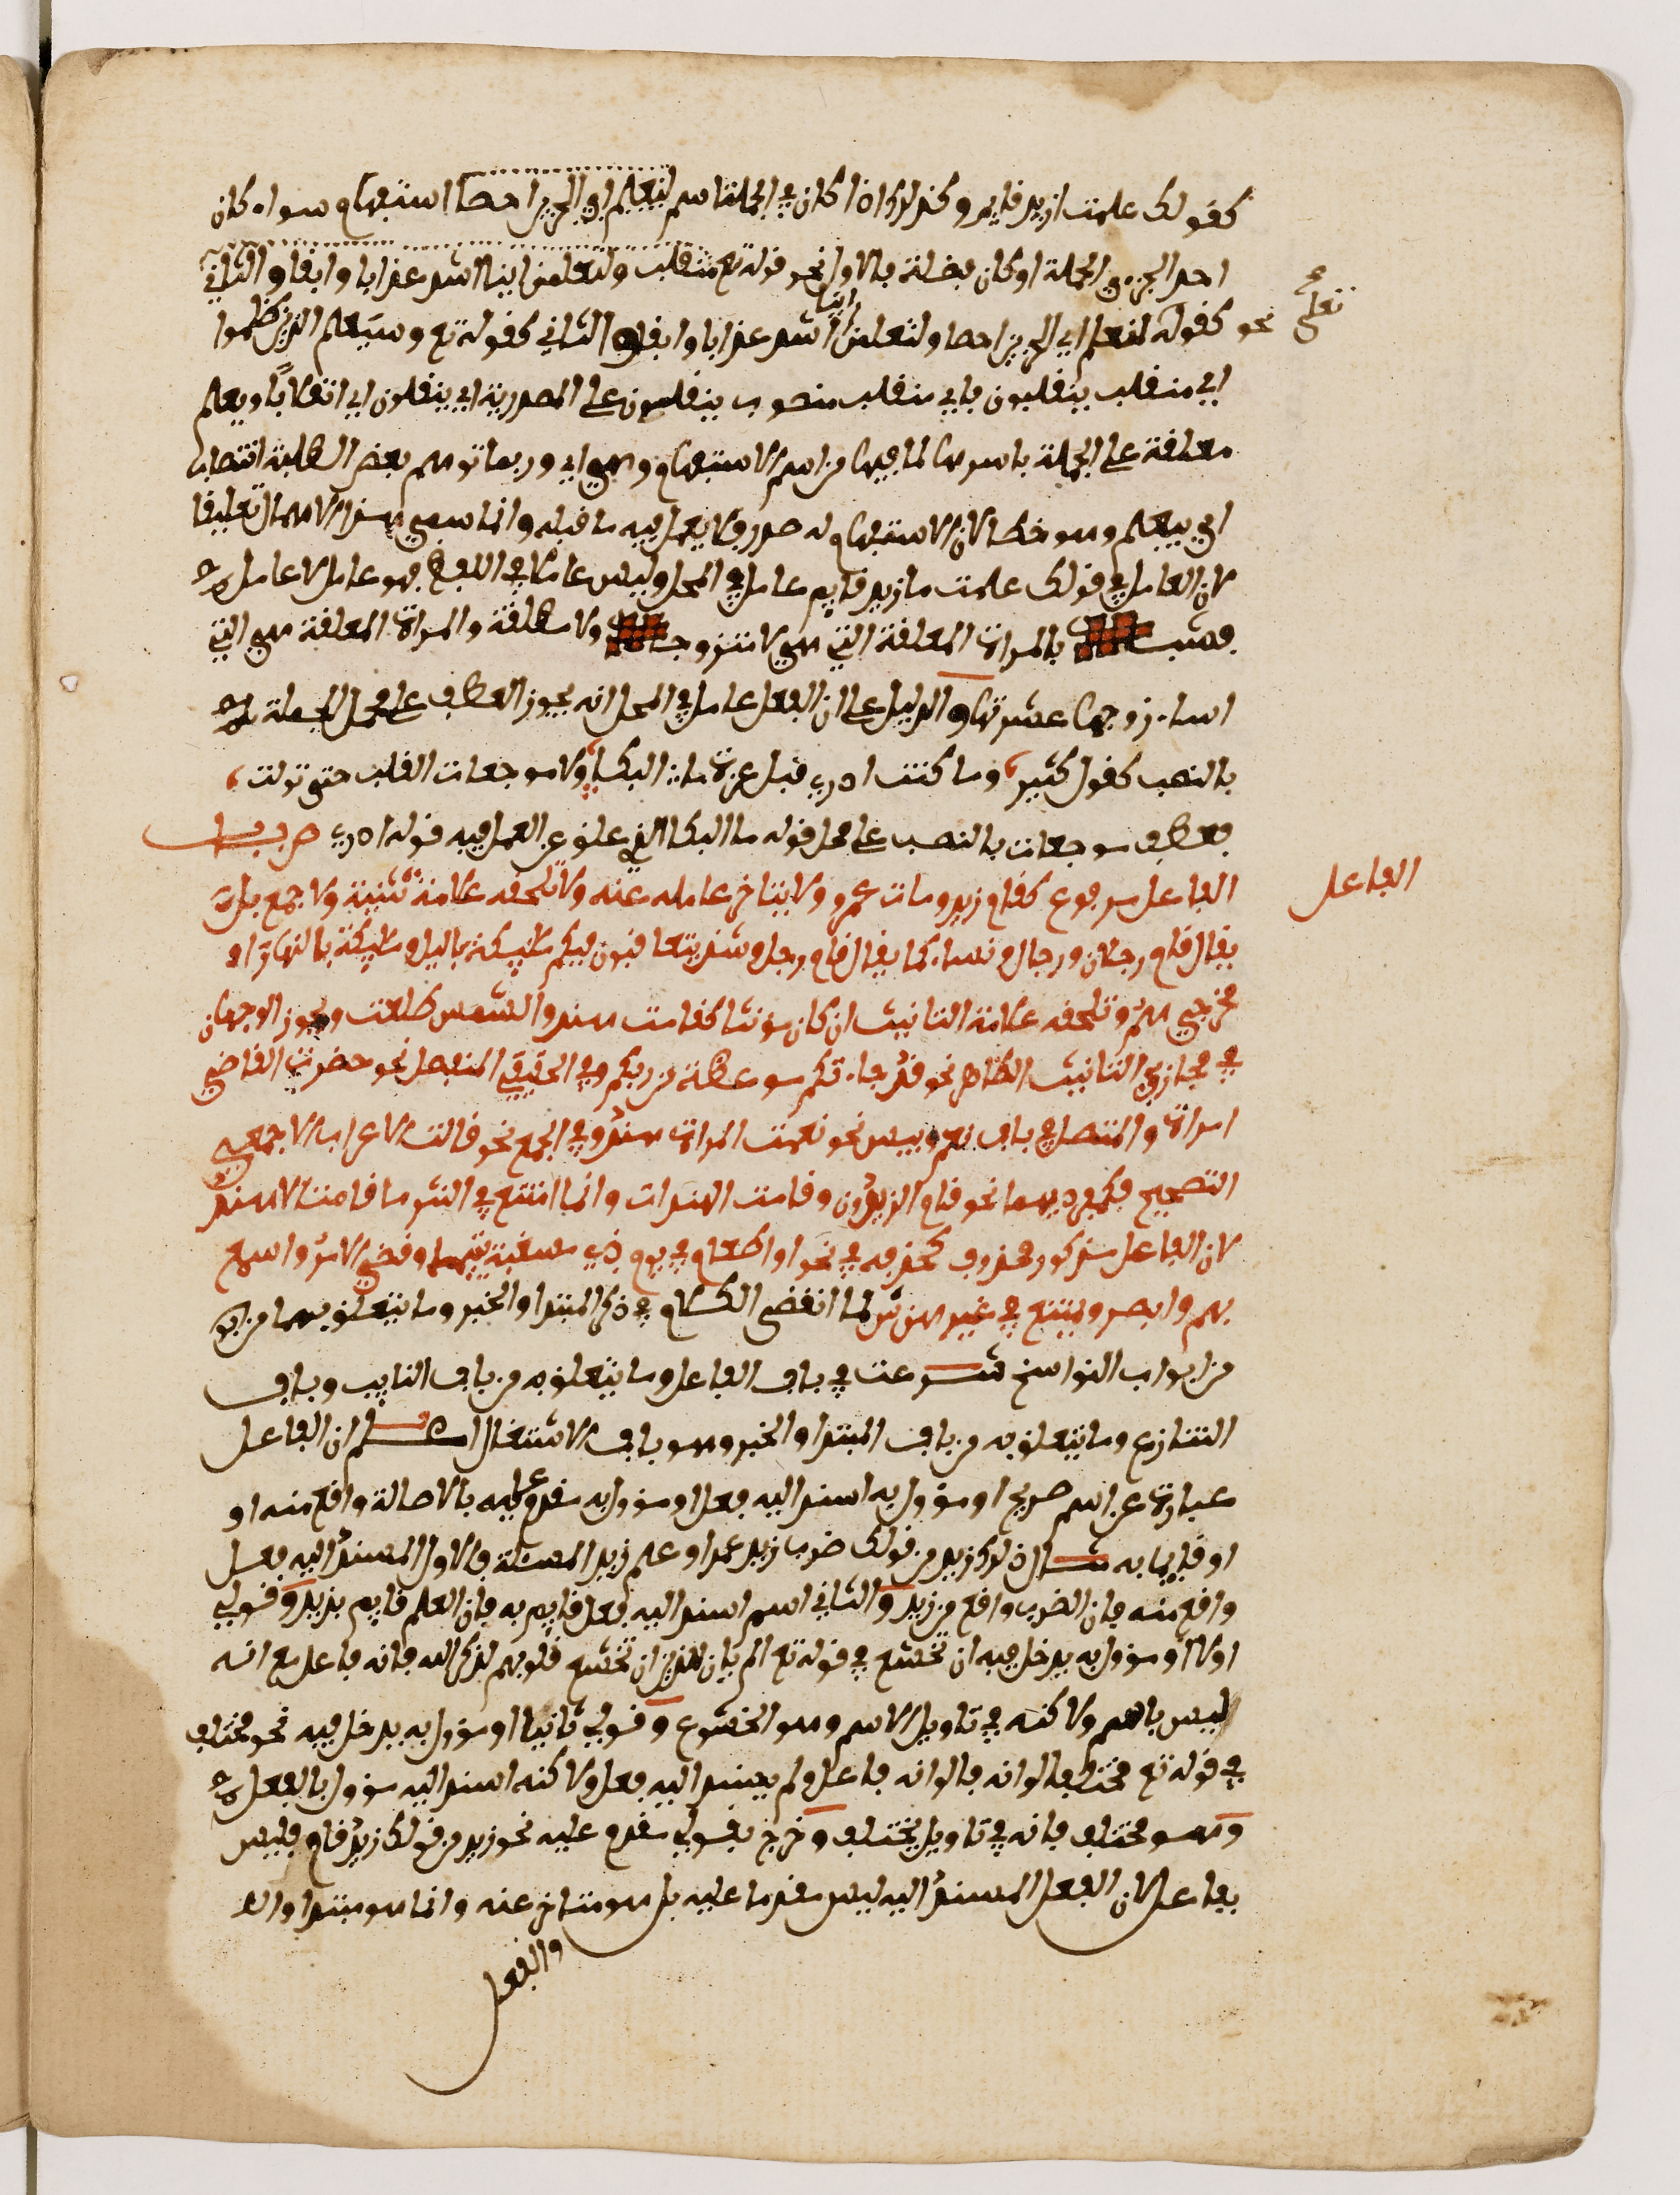 كقولك علمت ازيد قايم وكذلك اذا كان في الجملة اسم لنعلم اي الحزبين احصا استفهام سواء كان
احد الجزءي الجملة او كان فضلة فالاول نحو قوله تع منقلب ولتعلمن اينا اشد عذابا وابقا والثاني
نحو كقوله لنعلم اي الحزبين احصا ولتعلمن اينا اشد عذابا وابقى والثاني كقوله تع وسيعلم الذين ظلموا
تعلى
اي منقلب ينقلبون فاي منقلب منصوب ينقلبون على المصدرية اي ينقلبون اي انقلابا ويعلم
معلقة على الجملة باسرها لما فيها من اسم الاستفهام وهي اي وربما توهم بعض الطلبة انتصاب
اي بيعلم وهو خطا لان الاستفهام له صدر ولا يعمل فيه ما قبله وانما سمي هذا الاهمال تعليقا
لان العامل في قولك علمت ما زيد قايم عامل في المحل وليس عاملا في اللفظ فهو عامل لا عامل
فشبه بالمراة المعلقة التي هي لا متزوجة ولا مطلقة والمراة المعلقة هي التي
اساء زوجها عشرتها والدليل على ان الفعل عامل في المحل انه يجوز العطف على محل الجملة
بالنصب كقول كثير وما كنت ادري قبل عزة ما البكا ولا موجعات القلب حتى تولت
فعطف موجعات بالنصب على محل قوله ما البكا الذي علق عن العمل فيه قوله ادري ص باب
الفاعل
الفاعل مرفوع كقام زيد ومات عمرو ولا يتاخر عامله عنه ولا تلحقه علامة تثنية ولا جمع بل
يقال قام رجلان ورجال ونساء كما يقال قام رجل وشذ يتعاقبون فيكم مليكة بالليل ومليكة بالنهار او
مخرجي هم وتلحقه علامة التانيث ان كان مونثا كقامت هند والشمس طلعت ويجوز الوجهان
في مجازي التانيث الظاهر نحو قد جاءتكم موعظة من ربكم وفي الحقيقي المنفصل نحو حضرت القاضي
امراة والمتصل في باب نعم وبيس نحو نعمت المراة هند وفي الجمع نحو قالت الاعراب الا جمعي
التصحيح فكمفرديهما نحو قام الزيدون وقامت الهندات وانما امتنع في النثر ما قامت الا هند
لان الفاعل مذكور محذوف كحذفه في نحو او اطعام في يوم ذي مسغبة يتيما وقضي الامر واسمع
بهم وابصر ويمتنع في غيرهن ش لما انقضى الكلام في ذكر المبتدا والخبر وما يتعلق بهما من ابو
من ابواب النواسخ شرعت في باب الفاعل وما يتعلق به من باب النايب وباب
التنازع وما يتعلق به من باب المبتدا والخبر وهو باب الاشتغال اعلم ان الفاعل
عبارة عن اسم صريح او مؤول به اسند اليه فعل او مؤول به مقدم عليه بالاصالة واقع منه او
او قايما به مثال ذلك زيد من قولك ضرب زيد عمرا وعلم زيد المسئلة فالاول المسند اليه فعل
واقع منه فان الضرب واقع من زيد والثاني اسم اسند اليه فعل قايم به فان العلم قايم بزيد وقولي
اولا او مؤول به يدخل فيه ان تخشع في قوله تع الم يان للذين ان تخشع قلوبهم لذكر الله فانه فاعل مع انه
ليس باسم ولاكنه في تاويل الاسم وهو الخشوع وقولي ثانيا او مؤول به يدخل فيه نحو مختلف
في قوله تع مختلف الوانه فالوانه فاعل ولم يسند اليه فعل ولاكنه اسند اليه مؤول بالفعل
وهو مختلف فانه في تاويل يختلف وخرج بقولي مقدم عليه نحو زيد من قولك زيد قام فليس
بفاعل لان الفعل المسند اليه ليس مقدما عليه بل هو متاخر عنه وانما هو مبتدا وال
والفعل